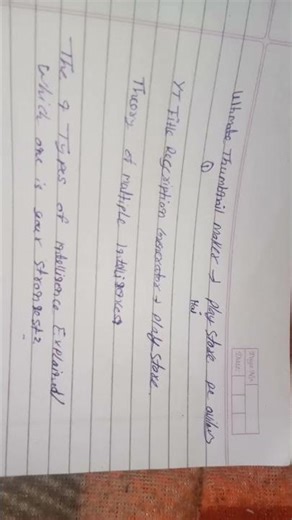 Page No.
Date
Ultimate Thumbnail maker → Play store pe
①
Hai
YT Title Description Generator → Play Store.
Theory of multiple Intelligences
The 9 Types of Intelligence Explained!
Which one is your strongest?